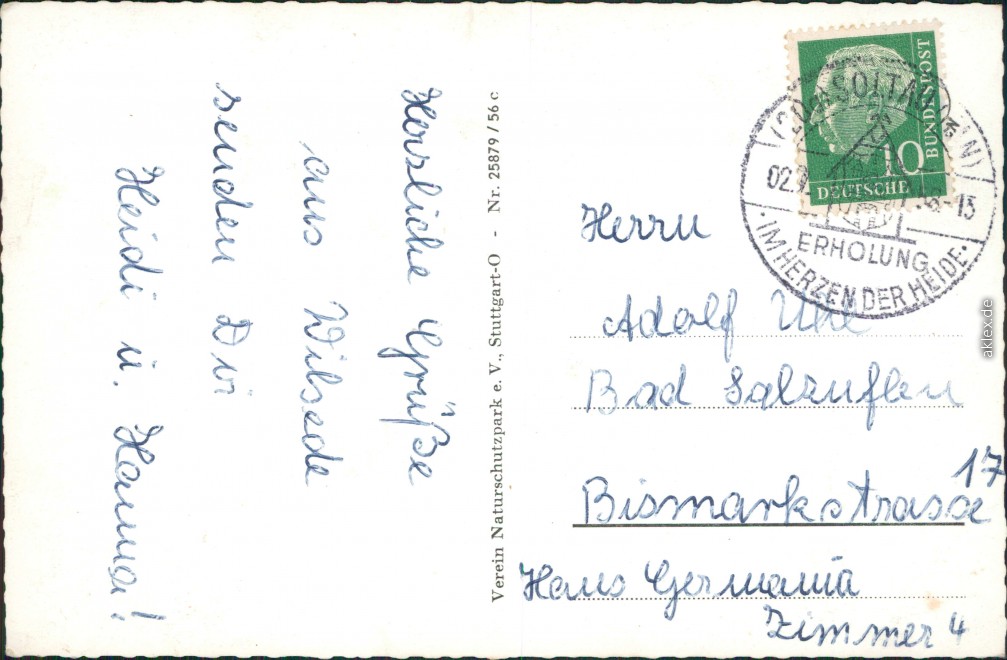 Herzliche Grüße
aus Wilsede
senden Dir
Heidi u. Hanna!
Verein Naturschutzpark e. V., Stuttgart-O - Nr. 25879 / 56 c
DEUTSCHE
BUNDESPOST
10
SOLTAU
ERHOLUNG
·IM HERZEN DER HEIDE·
Herrn
Adolf Uhl
Bad Salzuflen
17
Bismarkstrasse
Haus Germania
Zimmer 4
aklex.de